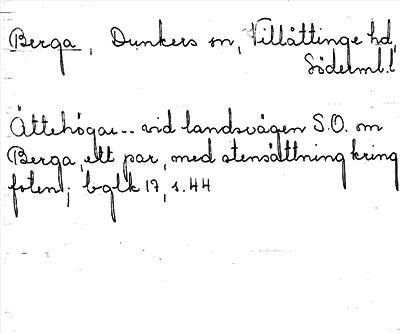 Berga, Dunkers sn, Villåttinge hd,
Söderml. l
Ättehögar -- vid landsvägen S.O. om
Berga, ett par, med stensättning kring
foten; bglk 17, s. 44